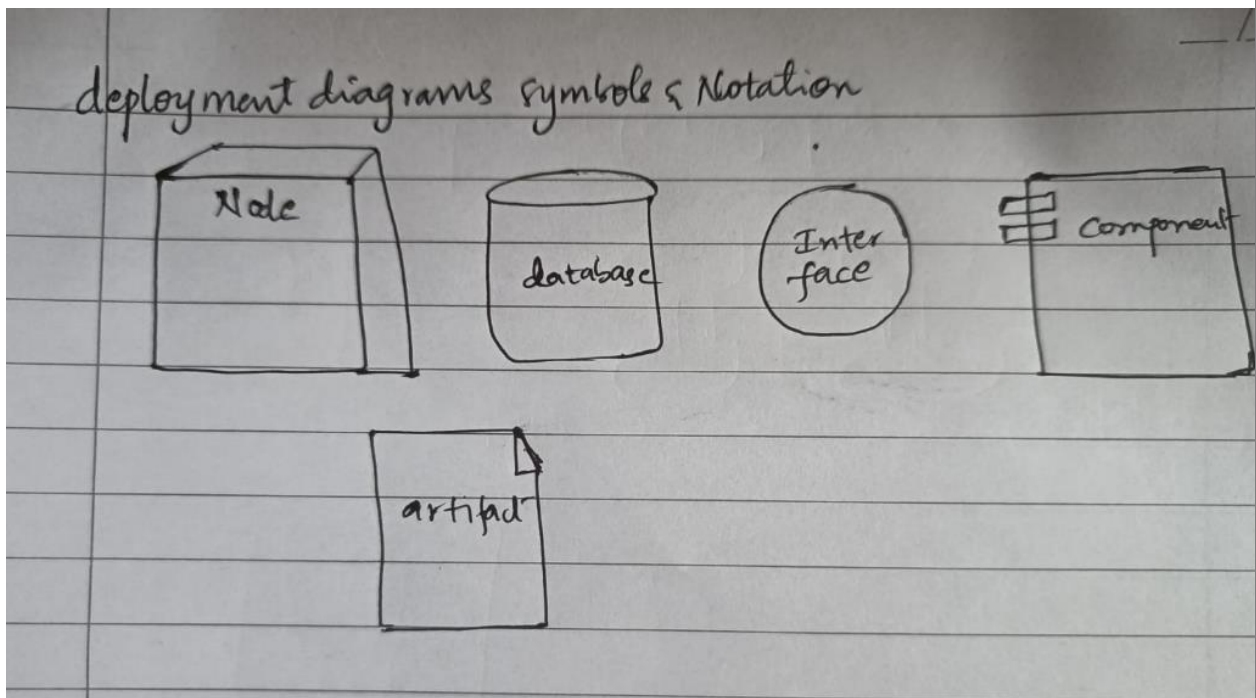 deployment diagrams symbols & Notation
Node
database
Inter
face
Component
artifact